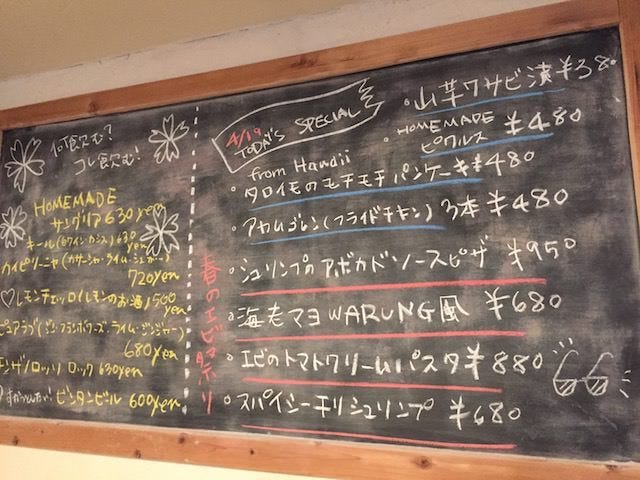 何飲む?
コレ飲む!
HOMEMADE
サングリア 630 yen
キール(白ワイン・カシス) 630 yen
カイピリーニャ(カサーシャ・ライム・シュガー)
720yen
♡レモンチェッロ(レモンのお酒) 500 yen
ピュアラブ(ジン・フランボワーズ・ライム・ジンジャー)
680 yen
ロック 630yen
ビンタンビール 600yen
4/19
TODAY'S SPECIAL
・山芋ワサビ漬 ¥380
・HOMEMADE
ピクルス ¥480
from Hawaii
・タロイモのモチモチパンケーキ ¥480
・アヤムゴレン(フライドチキン) 3本 ¥480
春のエビ祭り
・シュリンプのアボカドソースピザ ¥950
・海老マヨ WARUNG風 ¥680
・エビのトマトクリームパスタ ¥880
・スパイシーチリシュリンプ ¥680